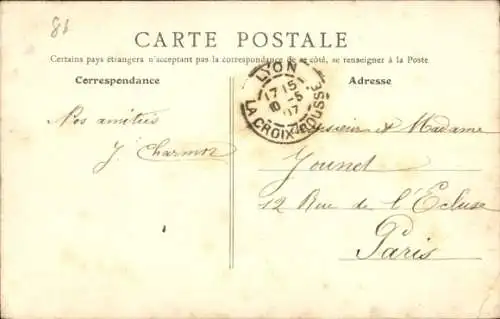 81
CARTE POSTALE
Certains pays étrangers n'acceptant pas la correspondance de ce côté, se renseigner à la Poste
Correspondance
Adresse
LYON
17 15
10 -5
07
LA CROIX-ROUSSE
Nos amitiés
J. Charmoz
Monsieur et Madame
Jounet
12 Rue de l'Ecluse
Paris